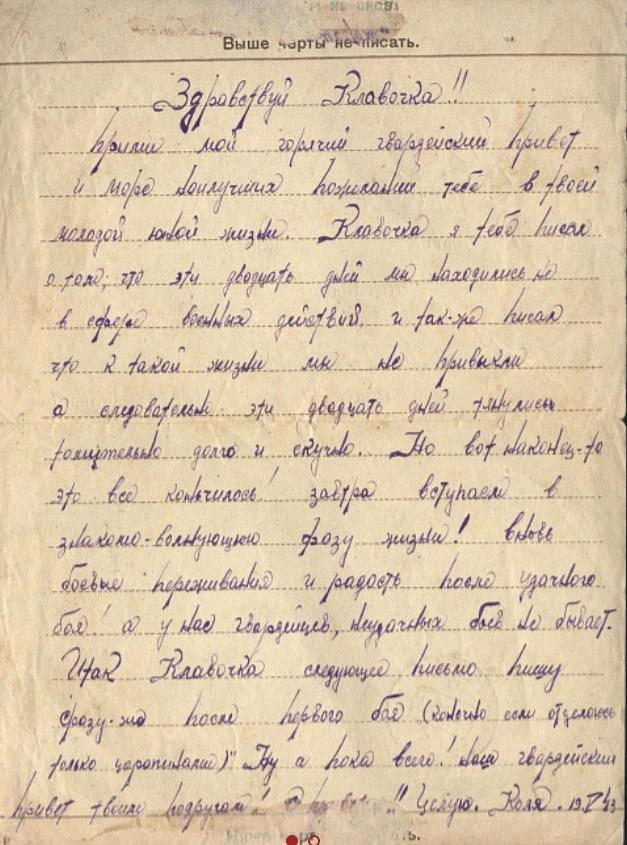 Выше черты не писать.
Здравствуй Клавочка!!
Прими мой горячий гвардейский привет
и море наилучших пожеланий тебе в твоей
молодой юной жизни. Клавочка я тебе писал
о том, что эти двадцать дней мы находились не
в сфере военных действий, и так-же писал
что к такой жизни мы не привыкли
а следовательно эти двадцать дней тянулись
томительно долго и скучно. Но вот наконец-то
это все кончилось! завтра вступаем в
знакомо-волнующую фазу жизни! вновь
боевые переживания и радость после удачного
боя! а у нас гвардейцев, неудачных боев не бывает.
Итак Клавочка следующее письмо пишу
сразу-же после первого боя (конечно если отделаюсь
только царапинами)" Ну а пока всего! наш гвардейский
привет твоим подругам! !! Целую. Коля. 19.V 43